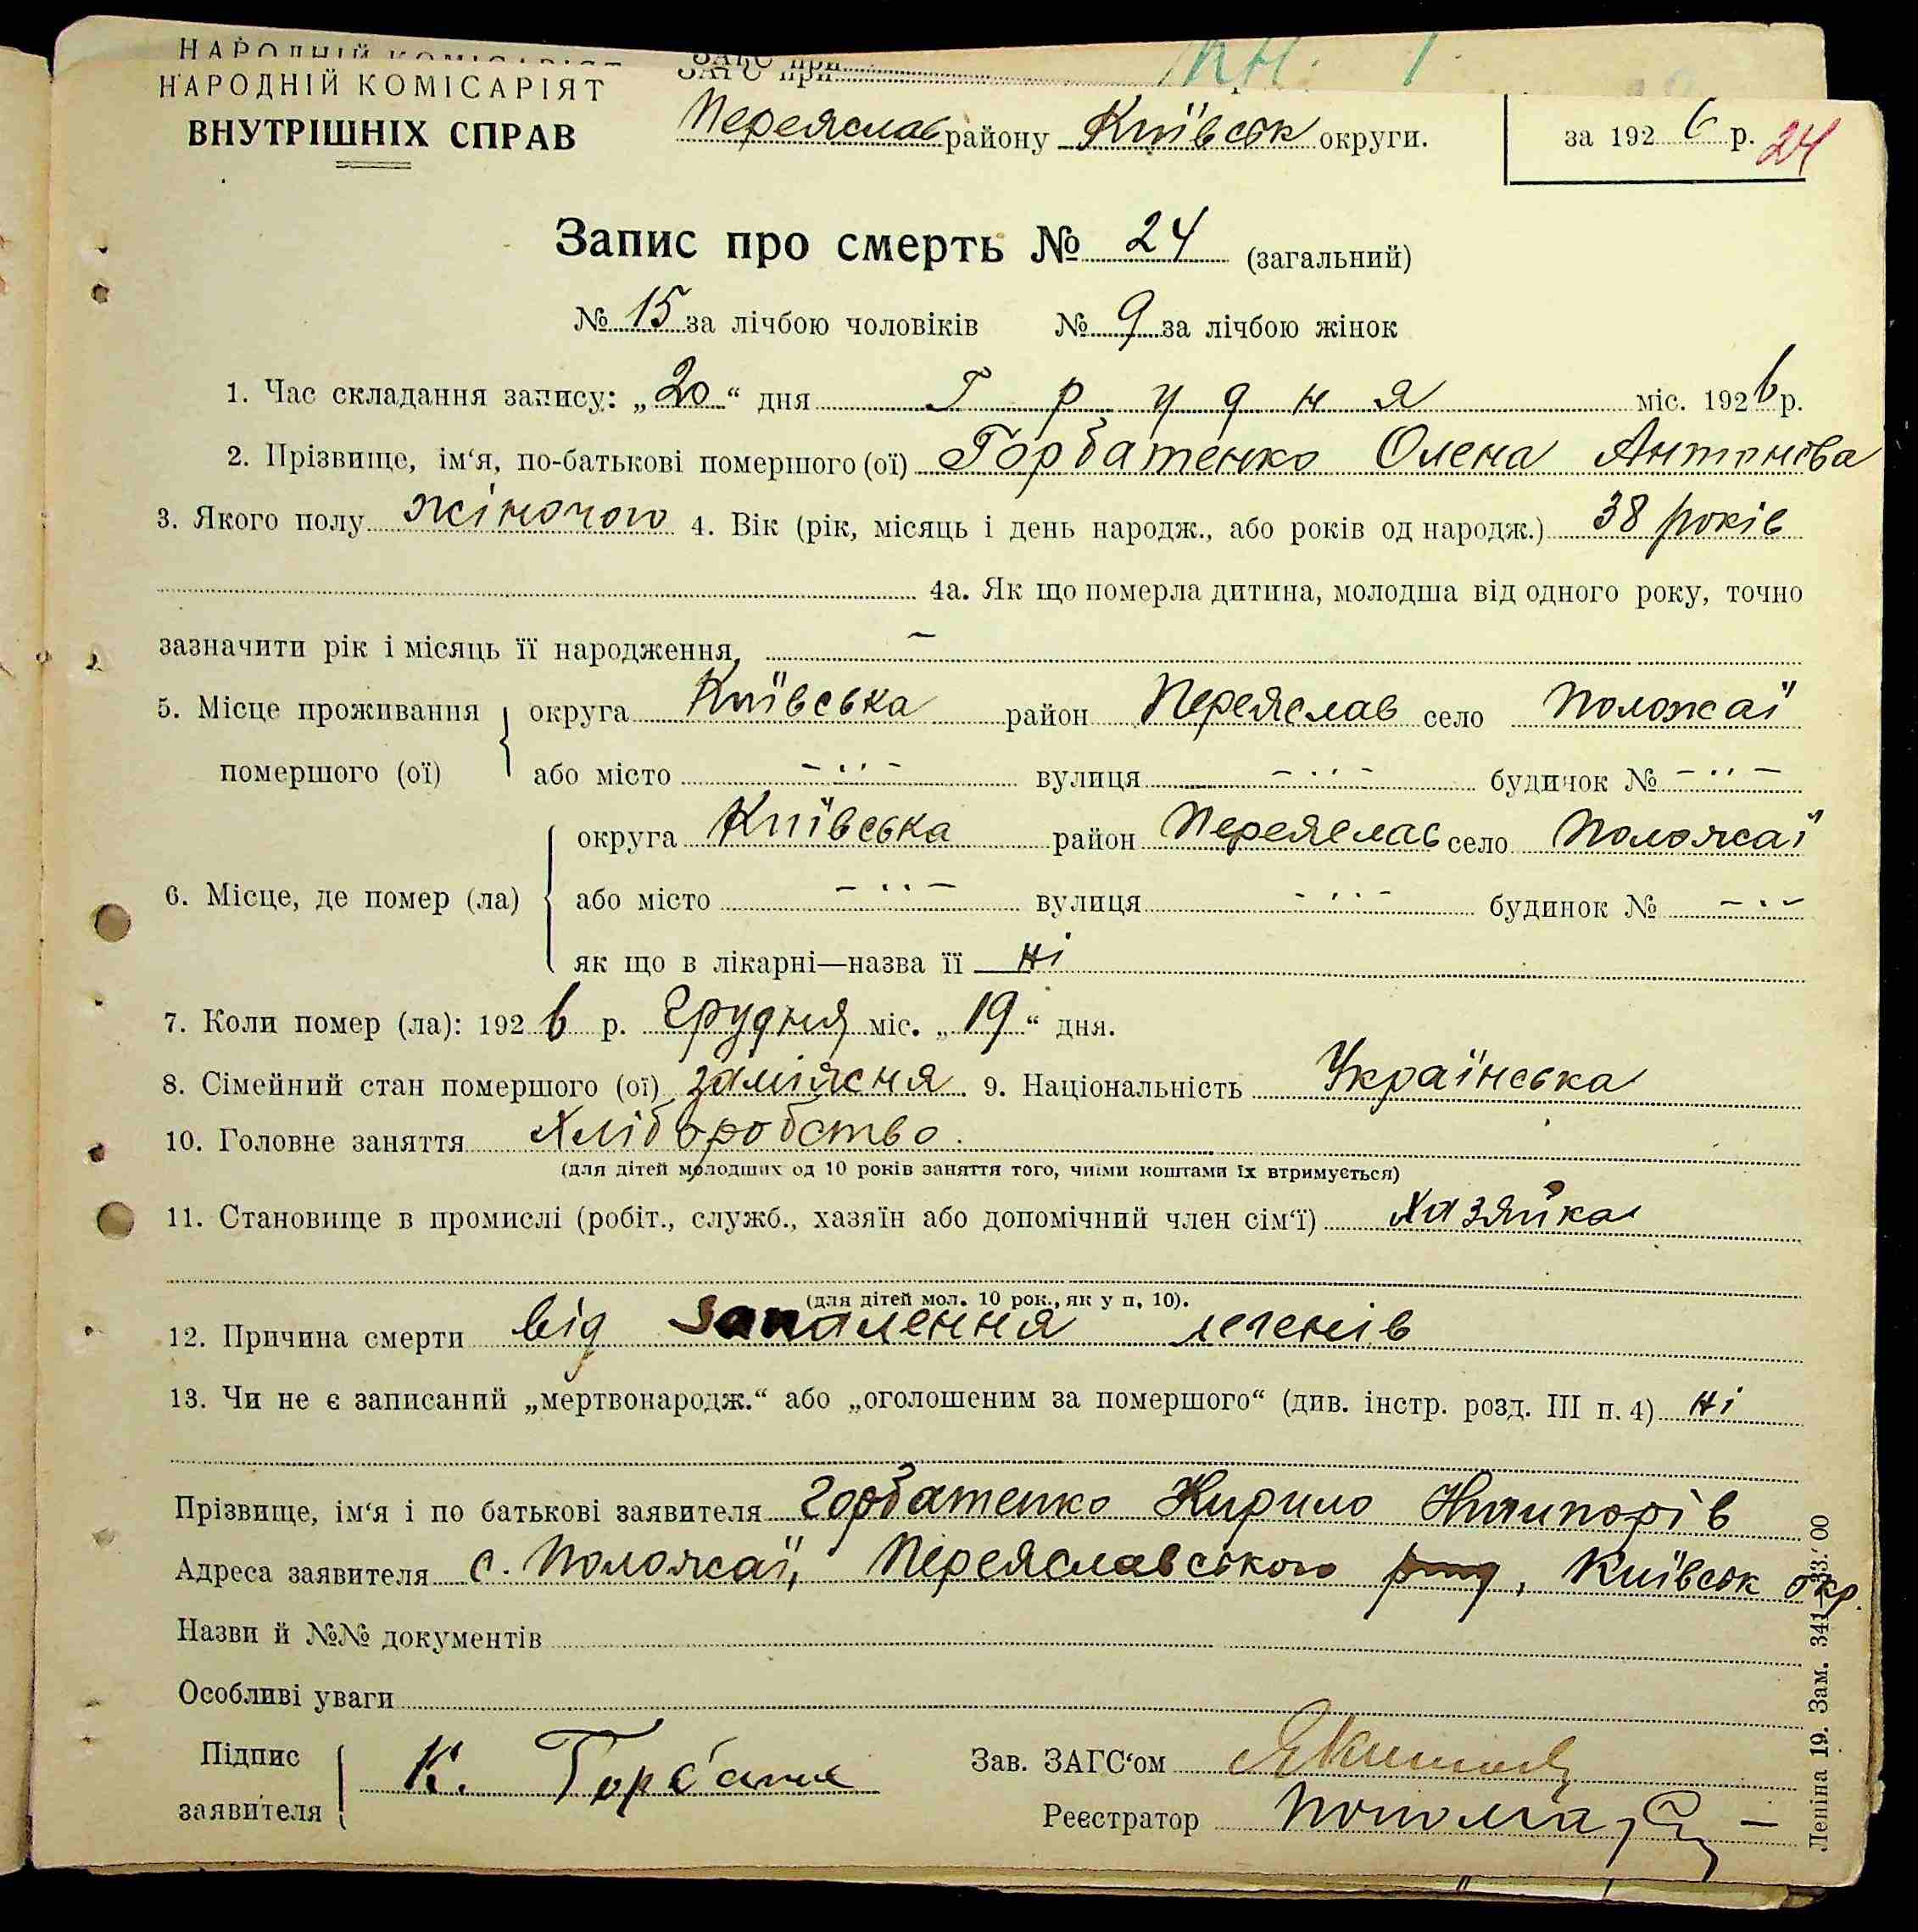 НАРОДНІЙ КОМІСАРІЯТ
ЗАГС при
кн. 1.
НАРОДНІЙ КОМІСАРІЯТ
ВНУТРІШНІХ СПРАВ
ЗАГС при
Переяслав району Київськ округи.
за 1926 р. 24
Запис про смерть № 24 (загальний)
№ 15 за лічбою чоловіків № 9 за лічбою жінок
1. Час складання запису: „20“ дня Грудня міс. 1926 р.
2. Прізвище, ім‘я, по-батькові помершого (ої) Горбатенко Олена Антонова
3. Якого полу жіночого 4. Вік (рік, місяць і день народж., або років од народж.) 38 років
4а. Як що померла дитина, молодша від одного року, точно
зазначити рік і місяць її народження, –
5. Місце проживання округа Київська район Переяслав село Положаї
помершого (ої) або місто – ·· – вулиця – ·· – будинок № – ·· –
округа Київська район Переяслав село Положаї
6. Місце, де помер (ла) або місто – ·· – вулиця – ·· – будинок № – · –
як що в лікарні—назва її ні
7. Коли помер (ла): 1926 р. Грудня міс. „19“ дня.
8. Сімейний стан помершого (ої) заміжня. 9. Національність Українська
10. Головне заняття Хліборобство.
(для дітей молодших од 10 років заняття того, чиїми коштами їх втримується)
11. Становище в промислі (робіт., служб., хазяїн або допомічний член сім‘ї) Хазяйка
(для дітей мол. 10 рок., як у п. 10).
12. Причина смерти від запалення легенів
13. Чи не є записаний „мертвонародж.“ або „оголошеним за помершого“ (див. інстр. розд. III п. 4) ні
Прізвище, ім‘я і по батькові заявителя Горбатенко Кирило Ничипорів
Адреса заявителя с. Положаї, Переяславського рну, Київськ окр.
Назви й №№ документів
Особливі уваги
Підпис заявителя К. Горбатен
Зав. ЗАГС‘ом
Реєстратор
Леніна 19. Зам. 341—33.00